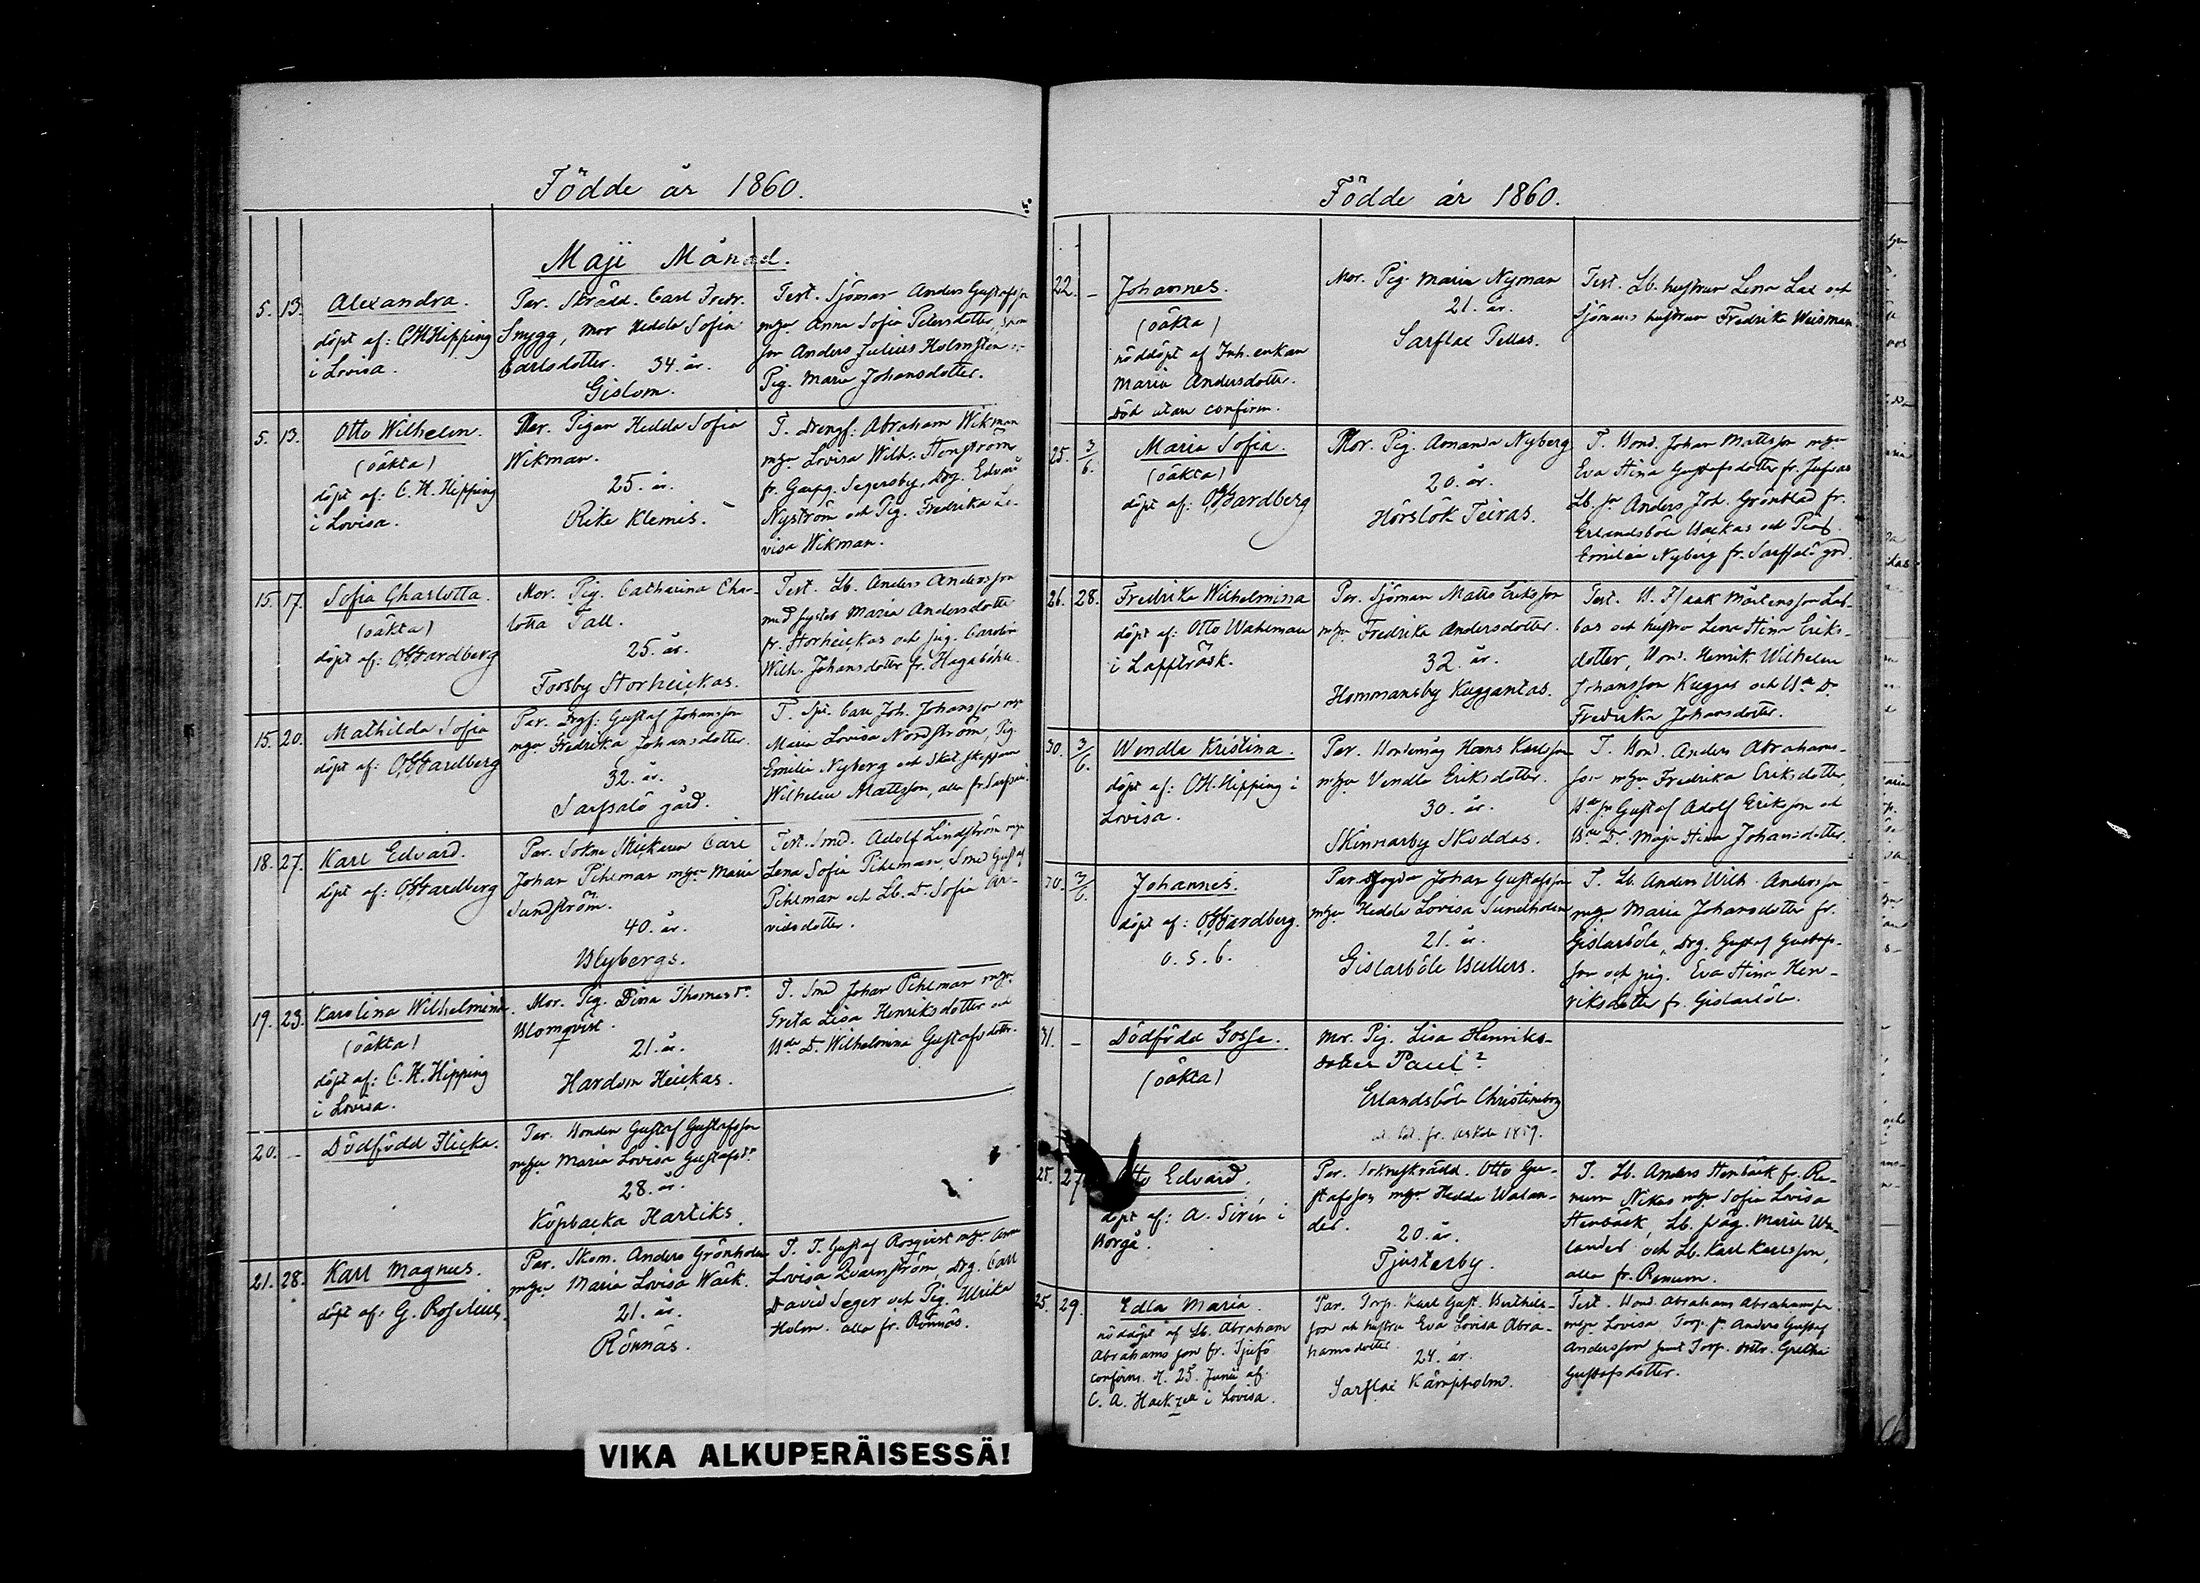 Födde år 1860.
Maji Månad.
5. 13. Alexandra.
döpt af: CHHipping
i Lovisa.
Par. Skrädd. Carl Fredr.
Snygg, mor Hedda Sofia
Carlsdotter. 34. år.
Gislom.
Test. Sjöman Anders Gustafsson
mhu Anna Sofia Petersdotter,
son Anders Julius Holmsten
Pig. Maria Johansdotter.
5. 13. Otto Wilhelm.
(oäkta)
döpt af: C. H. Hipping
i Lovisa.
Mor. Pigan Hedda Sofia
Wikman.
25. år.
Rike Klemis.
T. Drengf. Abraham Wikman
mhu Lovisa Wilh. Stenström
fr. Garpg. Segersby, Drg. Edvard
Nyström och Pig. Fredrika Lo-
visa Wikman.
15. 17. Sofia Charlotta.
(oäkta)
döpt af: OGardberg
Mor. Pig. Catharina Char-
lotta Tall.
25. år.
Forsby Storheickas.
Test. Lb. Anders Andersson
med syster Maria Andersdotter
fr. Storheickas och pig. Carolin
Wilh. Johansdotter fr. Hagaböhle.
15. 20. Mathilda Sofia
döpt af: OGardberg
Par. Drgf: Gustaf Johansson
mhu Fredrika Johansdotter.
32. år.
Sarfsalö gård.
T. Carl Joh. Johansson mhu
Maria Lovisa Nordström, Pig.
Emilia Nyberg och
Wilhelm Mattsson, alla fr.
18. 27. Karl Edvard.
döpt af: OGardberg
Par. Sokne Snickaren Carl
Johan Pihlman mhu Maria
Sundström.
40. år.
Blybergs.
Test. Smed. Adolf Lindström mhu
Lena Sofia Pihlman Smed Gustaf
Pihlman och Lb. D. Sofia Ar-
vidsdotter.
19. 23. Karolina Wilhelmina.
(oäkta)
döpt af: C. H. Hipping
i Lovisa.
Mor. Pig. Dina Thomasd:r
Blomqvist.
21. år.
Hardom Heickas.
T. Smed Johan Pihlman mhu
Greta Lisa Henriksdotter och
D. Wilhelmina Gustafsdotter.
20. – Dödfödd Flicka.
Par. Bonden Gustaf Gustafsson
mhu Maria Lovisa Gustafsd:r
28. år.
Köpbacka Hartiks.
21. 28. Karl Magnus.
döpt af: G. Roselius.
Par. Skom. Anders Grönholm
mhu Maria Lovisa Wäck.
21. år.
Rönnäs.
T. T. Gustaf Rosqvist mhu Anna
Lovisa Qvarnström, Drg. Carl
David Seger och Pig. Ulrika
Holm. alla fr. Rönnäs.
VIKA ALKUPERÄISESSÄ!
Födde år 1860.
22. – Johannes.
(oäkta)
nöddöpt af Inh. enkan
Maria Andersdotter.
Död utan confirm.
Mor. Pig. Maria Nyman
21. år.
Sarflax Pellas.
Test. Lb. hustrun Lena Lax och
Sjömans hustrun Fredrika Weisman
25. 3/6. Maria Sofia.
(oäkta)
döpt af: OGardberg
Mor. Pig. Amanda Nyberg
20. år.
Hörslök Teiras.
T. Bond. Johan Mattsson mhu
Eva Stina Gustafsdotter fr.
Lb. sn Anders Joh. Grönblad fr.
Erlandsböle Backas och
Emilia Nyberg fr. Sarfsalö grd.
26. 28. Fredrika Wilhelmina
döpt af: Otto Wahlman
i Lappträsk.
Par. Sjöman Matts Eriksson
mhu Fredrika Andersdotter.
32. år.
Hommansby Kuggantas.
Test. B. Isaak Mårtensson Lab-
bas och hustru Lena Stina Eriks-
dotter, Bond. Henrik Wilhelm
Johansson Kuggas och
Fredrika Johansdotter.
30. 3/6 Wendla Kristina.
döpt af: CH. Hipping i
Lovisa.
Par. Bondemåg Hans Karlsson
mhu Vendla Eriksdotter.
30. år.
Skinnarby Skeddas.
T. Bond. Anders Abrahams-
son mhu Fredrika Eriksdotter,
Gustaf Adolf Eriksson och
Maja Stina Johansdotter.
30. 3/6. Johannes.
döpt af: OGardberg.
o. s. b.
Par. Fogden Johan Gustafsson
mhu Hedda Lovisa Sundholm
21. år.
Gislarböle Bullers.
T. Lb. Anders Wilh. Andersson
mhu Maria Johansdotter fr.
Gislarböle, Drg. Gustaf Gustafs-
son och pig. Eva Stina Hen-
riksdotter fr. Gislarböle.
31. – Dödfödd Gosse.
(oäkta)
Mor. Pig. Lisa Henriks-
dotter Paul?
Erlandsböle Christineborg
fr. Askola 1859.
25. 27 Otto Edvard.
döpt af: A. Sirén i
Borgå.
Par. Sokneskrädd. Otto Gu-
stafsson mhu Hedda Walan-
der.
20. år.
Tjusterby.
T. Lb. Anders Stenbäck fr. Re-
num Nikas mhu Sofia Lovisa
Stenbäck, Lb. pig. Maria Wa-
lander och Lb. Karl Karlsson,
alla fr. Renum.
25. 29. Edla Maria.
nöddöpt af Lb. Abraham
Abrahamsson fr. Tjusö
confirm. d. 25. Junii af
C. A. Hackzell i Lovisa.
Par. Torp. Karl Gust. Berthels-
son och hustru Eva Lovisa Abra-
hamsdotter.
24. år.
Sarflax Kämpholm.
Test. Bond. Abraham Abrahamsson
mhu Lovisa, Torp. sn Anders Gustaf
Andersson samt Torp. dottr. Gretha
Gustafsdotter.